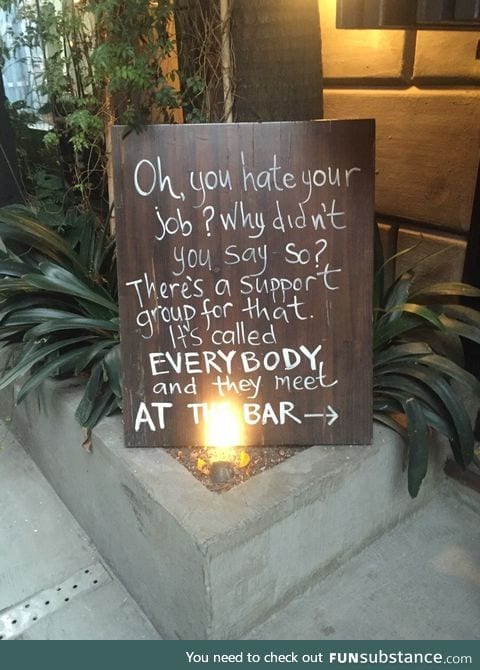 Oh, you hate your
job? Why didn't
you say so?
There's a support
group for that.
It's called
EVERYBODY,
and they meet
AT BAR →
You need to check out FUNsubstance.com